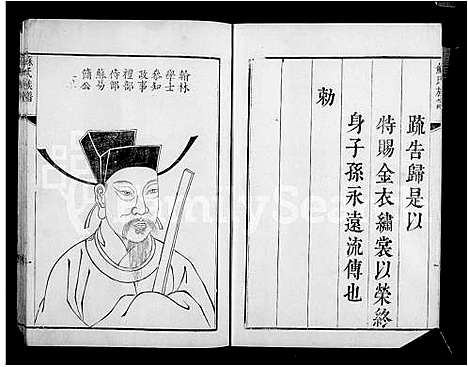 疏告歸是以
特賜金衣繡裳以榮終
身子孫永遠流傳也
勅
翰林
學士
參知
政事
禮部
侍郎
蘇易
簡公
蘇氏族譜